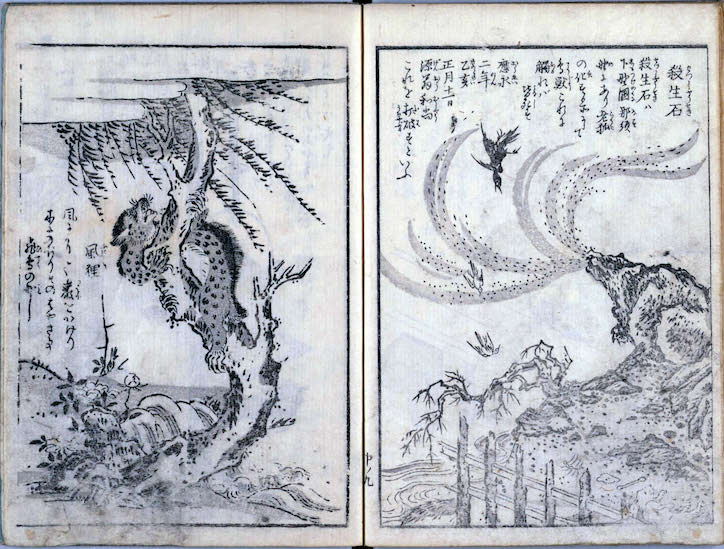 殺生石
殺生石ハ
下野國那須
野にあり老狐
の化する所にて
鳥獣これに
觸れば皆
應永
二年
乙亥
正月十一日
源翁和尚
これを打破すといふ
中ノ九
風狸
風によりて巌をかけり
木にのぼりそのはやき事
飛鳥の如し